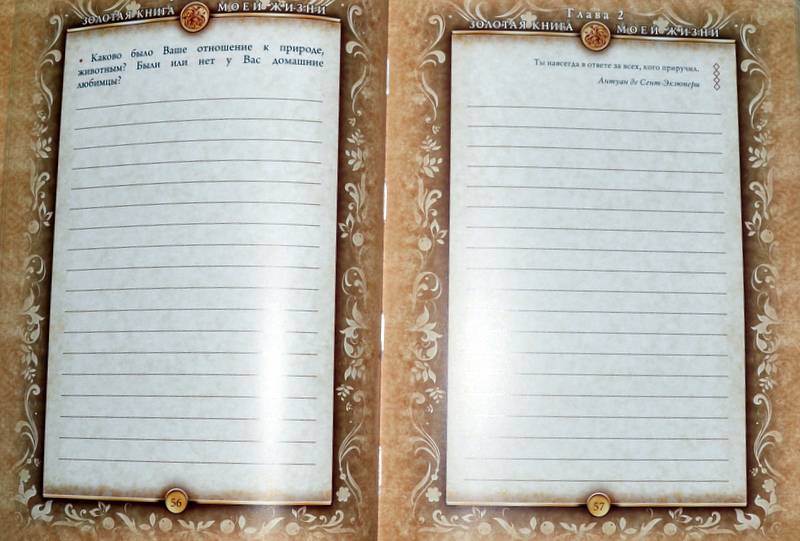 ЗОЛОТАЯ КНИГА МОЕЙ ЖИЗНИ
• Каково было Ваше отношение к природе,
животным? Были или нет у Вас домашние
любимцы?
56
Глава 2
ЗОЛОТАЯ КНИГА МОЕЙ ЖИЗНИ
Ты навсегда в ответе за всех, кого приручил.
Антуан де Сент-Экзюпери
57